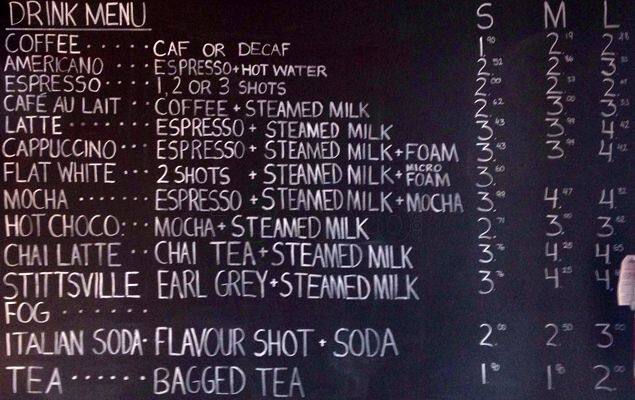 DRINK MENU S M L
COFFEE ······ CAF OR DECAF 1.90 2.19 2.28
AMERICANO ··· ESPRESSO+HOT WATER 2.51 2. 3.
ESPRESSO ··· 1, 2 OR 3 SHOTS 2.00 2. 2.
CAFÉ AU LAIT ·· COFFEE + STEAMED MILK 2.62 3.00 3.
LATTE ······· ESPRESSO + STEAMED MILK 3.43 3.99 4.42
CAPPUCCINO ·· ESPRESSO + STEAMED MILK+FOAM 3.43 3.99 4.42
FLAT WHITE ··· 2 SHOTS + STEAMED MILK+ MICRO FOAM 3.60
MOCHA ······· ESPRESSO + STEAMED MILK+MOCHA 3.99 4.47 4.
HOT CHOCO: ·· MOCHA + STEAMED MILK 2.71 3. 3.62
CHAI LATTE ·· CHAI TEA + STEAMED MILK 3.76 4.25 4.
STITTSVILLE EARL GREY+STEAMED MILK 3.76 4.25 4.
FOG ·······
ITALIAN SODA· FLAVOUR SHOT + SODA 2.00 2.50 3.00
TEA ······ BAGGED TEA 1. 1. 2.00